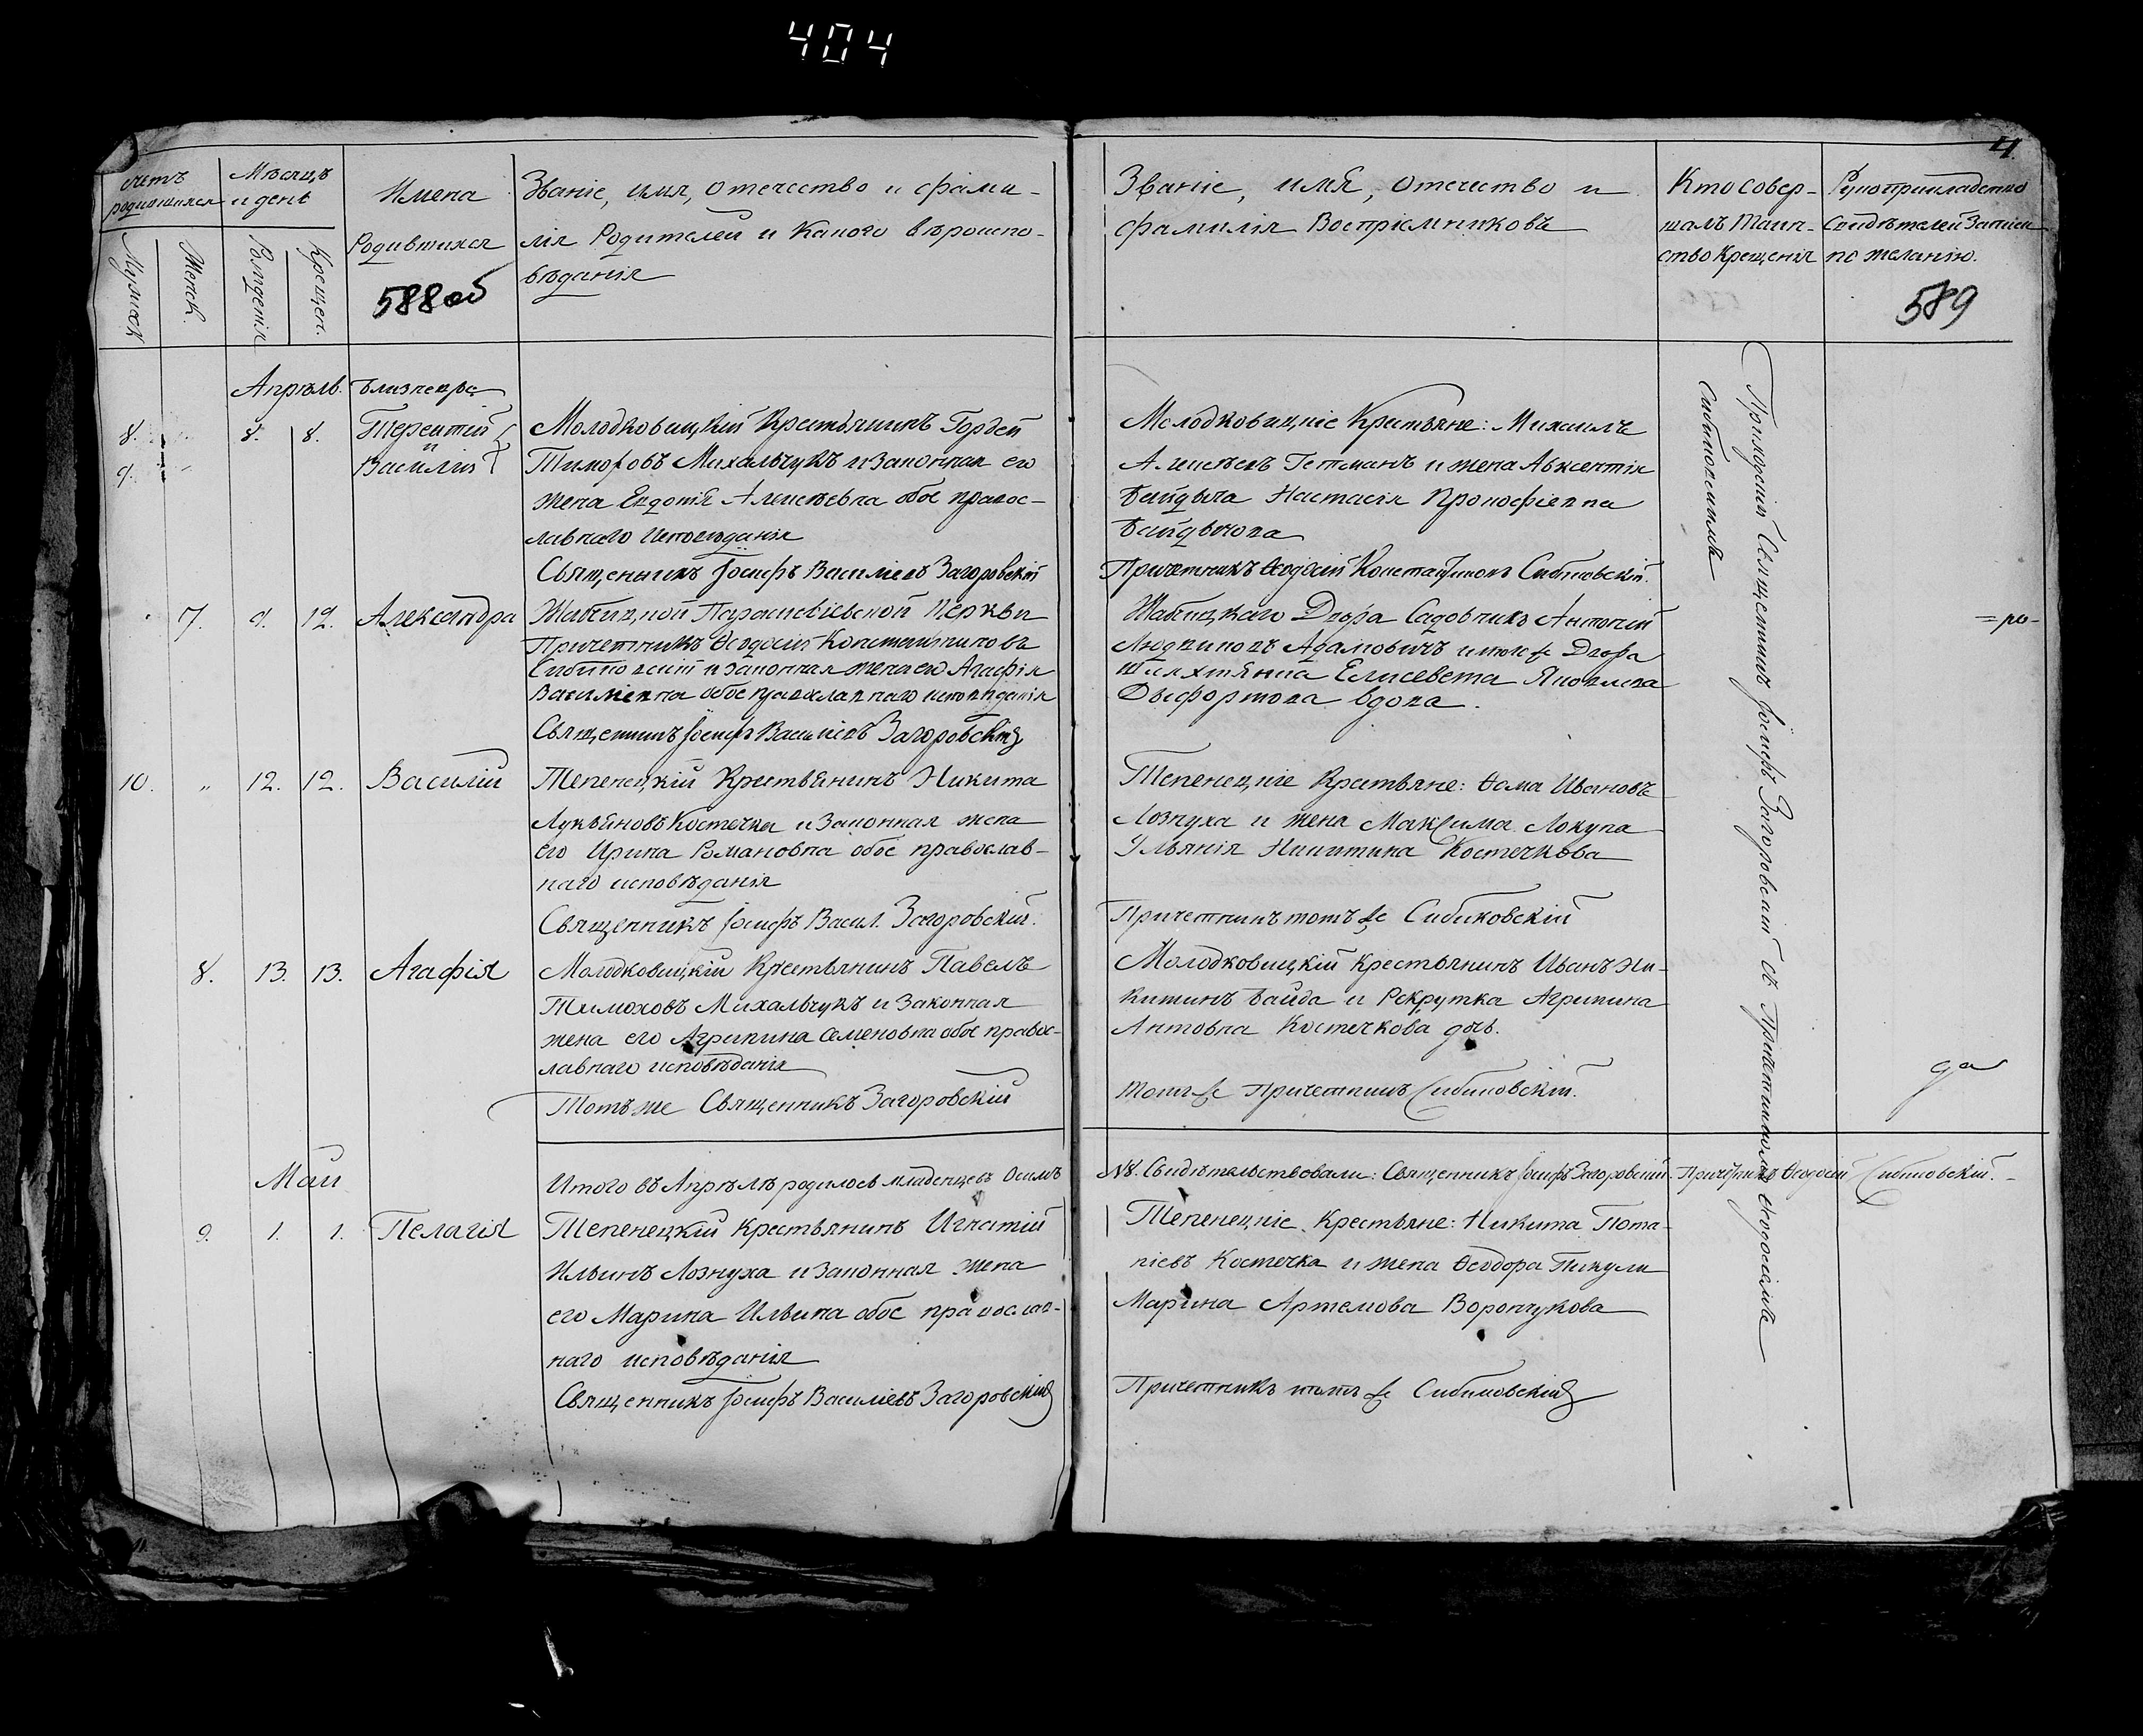 404
4
счетъ родившихся
Мѣсяцъ и день
Имена Родившихся
Званіе, имя, отечество и фами-
лія Родителей и Какого вѣроиспо-
вѣданія
Мужеск
Женск.
Рожденія
Крещен.
588 об
Званіе, имя, отечество и
фамилія Воспріемниковъ
Кто совер-
шалъ Таин-
ство Крещенія
Рукоприкладство
Свидѣтелей Записи
по желанію.
589
Апрѣль. близнецы
8. 8. 8. Терентій
9. и Василій
Молодковицкій Крестьянинъ Гордей
Тимоховъ Михальчукъ и Законная его
жена Евдокія Алексѣевна обое правос-
лавнаго исповѣданія
Священникъ Іосифъ Василіевъ Загоровскій
Молодковицкіе Крестьяне: Михаилъ
Алексѣевъ Гетманъ и жена Авксентія
Байдыча Настасія Прокофіевна
Байдычова
Причетникъ Ѳеодосій Константиновъ Сибиковскій.
7. 9. 12. Александра
Жабицкой Параскевіевской Церкви
Причетникъ Ѳеодосій Константиновъ
Сибиковскій и законная жена его Агафія
Василіевна обое православнаго исповѣданія
Священникъ Іосифъ Василіевъ Загоровскій
Жабицкаго Двора Садовникъ Антоній
Людвиковъ Адамовичъ и того же Двора
Шляхтянка Елисевета Яковлева
вдова.
10. " 12. 12. Василій
Тепенецкій Крестьянинъ Никита
Лукьяновъ Костечка и Законная жена
его Ирина Романовна обое православ-
наго исповѣданія
Священникъ Іосифъ Васил. Загоровскій.
Тепенецкіе Крестьяне: Ѳома Ивановъ
Лознуха и жена Максима Локуна
Ульянія Никитина Костечкова
Причетникъ тотъ же Сибиковскій
8. 13. 13. Агафія
Молодковицкій Крестьянинъ Павелъ
Тимоховъ Михальчукъ и Законная
жена его Агрипина Семеновна обое правос-
лавнаго исповѣданія
Тотъ же Священникъ Загоровскій
Молодковицкій Крестьянинъ Иванъ Ни-
китинъ Байда и Рекрутка Агрипина
Антовна Костечкова дѣв.
Тотъ же Причетникъ Сибиковскій.
Май
Итого въ Апрѣлѣ родилось младенцевъ Осимъ
№8. Свидѣтельствовали: Священникъ Іосифъ Загоровскій. Причетникъ Ѳеодосій Сибиковскій.
9. 1. 1. Пелагія
Тепенецкій Крестьянинъ Игнатій
Ильинъ Лознуха и Законная жена
его Марина Ильина обое православ-
наго исповѣданія
Священникъ Іосифъ Василіевъ Загоровскій
Тепенецкіе Крестьяне: Никита Пота-
піевъ Костечка и жена Ѳеодора Пикули
Марина Артемова Ворончукова
Причетникъ тотъ же Сибиковскій
Приходскій Священникъ Іосифъ Загоровскій съ Причетникомъ Ѳеодосіемъ
Сибиковскимъ
да